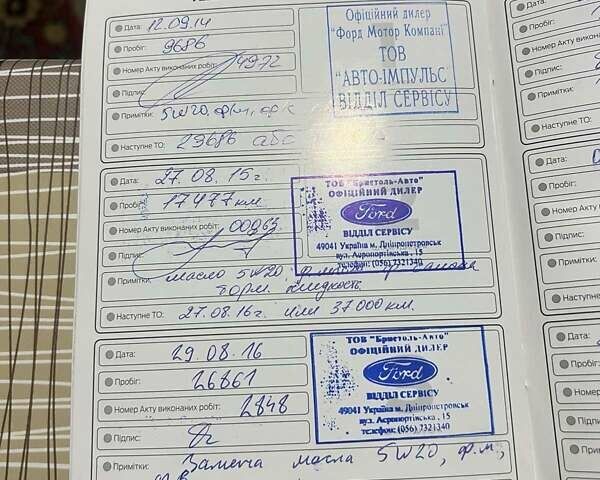 Дата: 12.09.14
Пробіг: 9686
Номер Акту виконаних робіт: 4972
Підпис:
Примітки: 5W20, ф.м.,
Наступне ТО: 29686 або
Офіційний дилер
"Форд Мотор Компані"
ТОВ
"АВТО-ІМПУЛЬС
ВІДДІЛ СЕРВІСУ
Дата: 27.08.15г.
Пробіг: 17477 км.
Номер Акту виконаних робіт: 00963
Підпис:
Примітки: масло 5W20, ф.масло
торм. жидкость
Наступне ТО: 27.08.16г. или 37000 км.
ТОВ "Бристоль-Авто"
ОФІЦІЙНИЙ ДИЛЕР
Ford
ВІДДІЛ СЕРВІСУ
49041 Україна м. Дніпропетровськ
вул. Аеропортівська , 15
телефон: (056) 7321340
Дата: 29.08.16
Пробіг: 26861
Номер Акту виконаних робіт: 2848
Підпис:
Примітки: Замена масла 5W20, ф.м.,
ТОВ "Бристоль-Авто"
ОФІЦІЙНИЙ ДИЛЕР
Ford
ВІДДІЛ СЕРВІСУ
49041 Україна м. Дніпропетровськ
вул. Аеропортівська , 15
телефон: (056) 7321340
Дата:
Пробіг:
Номер Акту
Підпис:
Примітки:
Наступне ТО:
Дата:
Пробіг:
Номер Акту
Підпис:
Примітки:
Наступне
Дата:
Пробіг:
Номер
Підпис:
Примітки